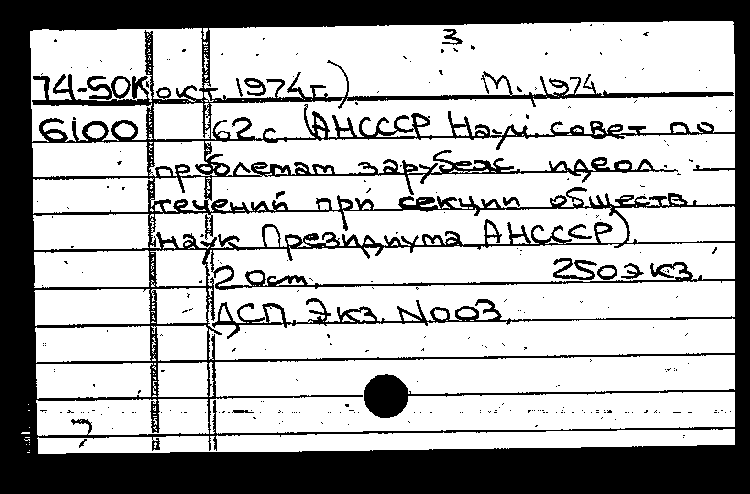 3.
74-50К окт. 1974г.) М., 1974.
6100 62 с. (АНСССР. Науч. совет по
проблемам зарубеж. идеол.
течений при секции обществ.
наук Президиума АНСССР).
250экз.
ДСП. Экз. N003.